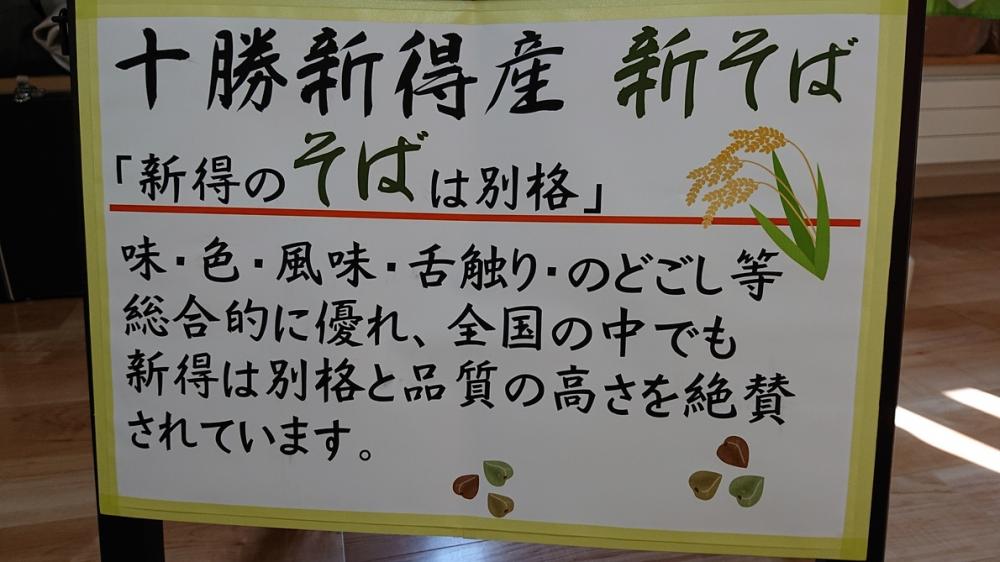 十勝新得産 新そば
「新得のそばは別格」
味・色・風味・舌触り・のどごし等
総合的に優れ、全国の中でも
新得は別格と品質の高さを絶賛
されています。